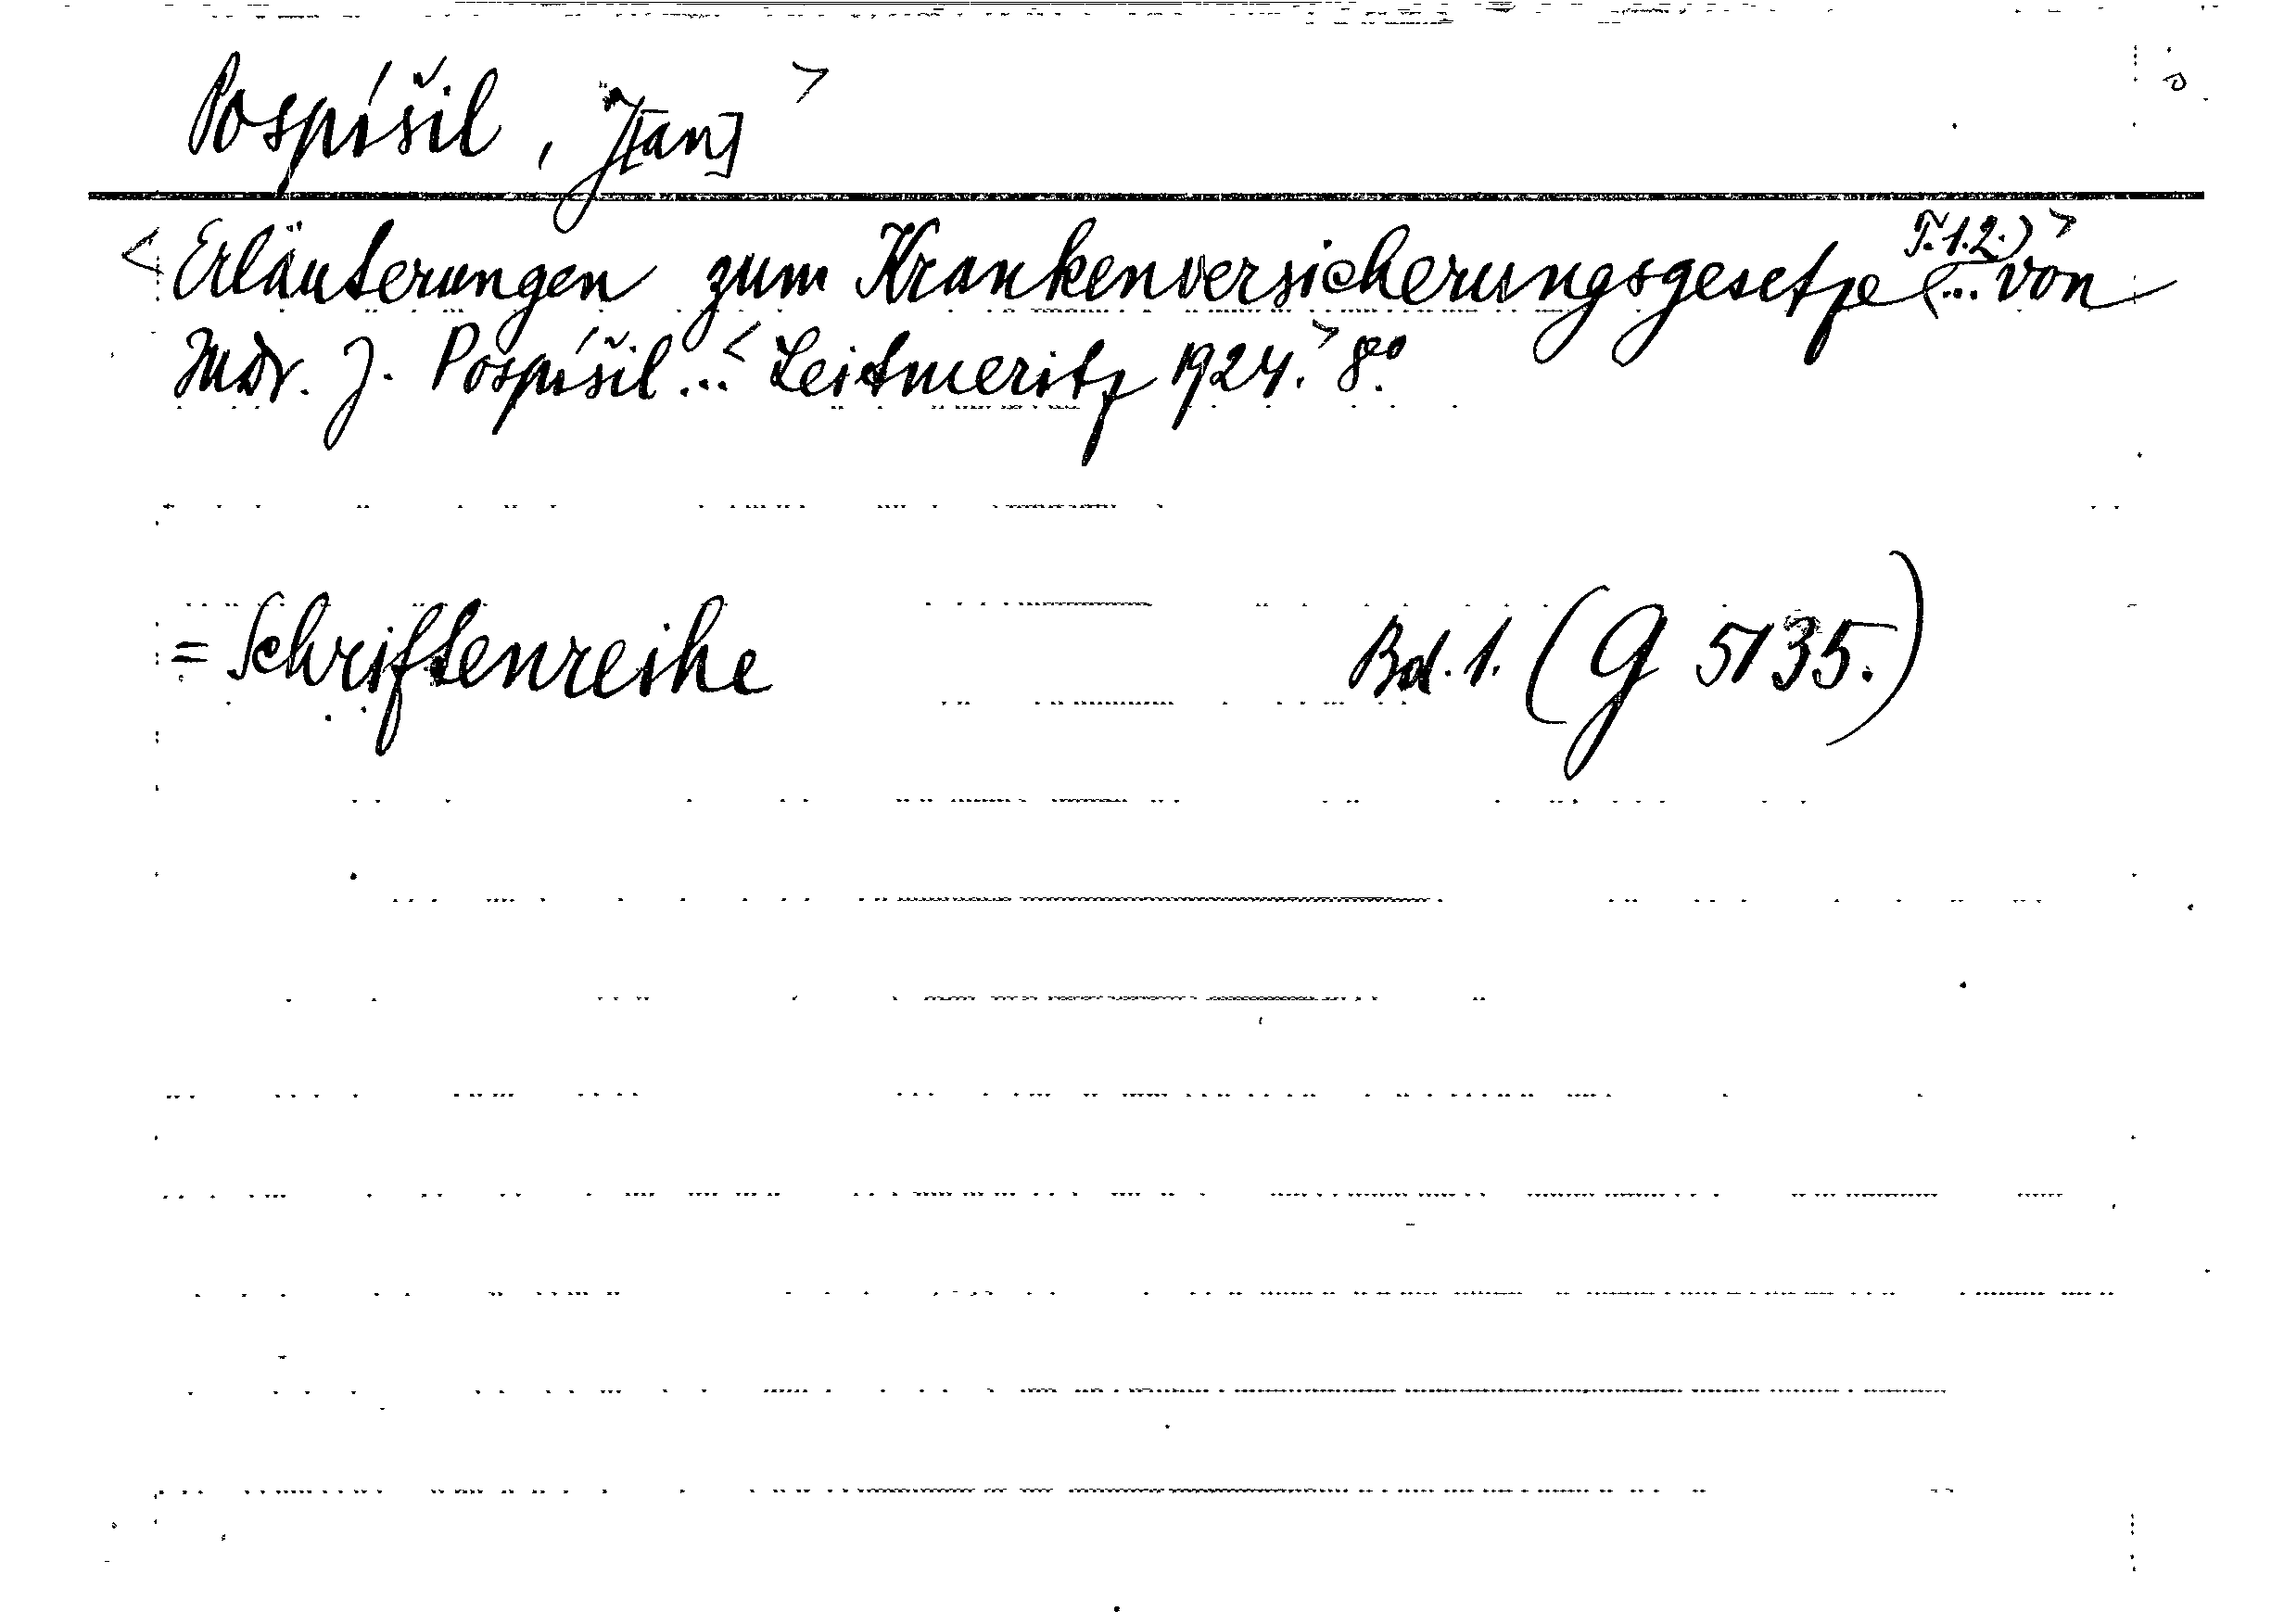 Pospíšil, J[an] >
T. 1. 2.) >
< Erläuterungen zum Krankenversicherungsgesetze (... von
MDr. J. Pospíšil ... < Leitmeritz 1924. > 8°.
= Schriftenreihe Bd. 1. (G 5135.)